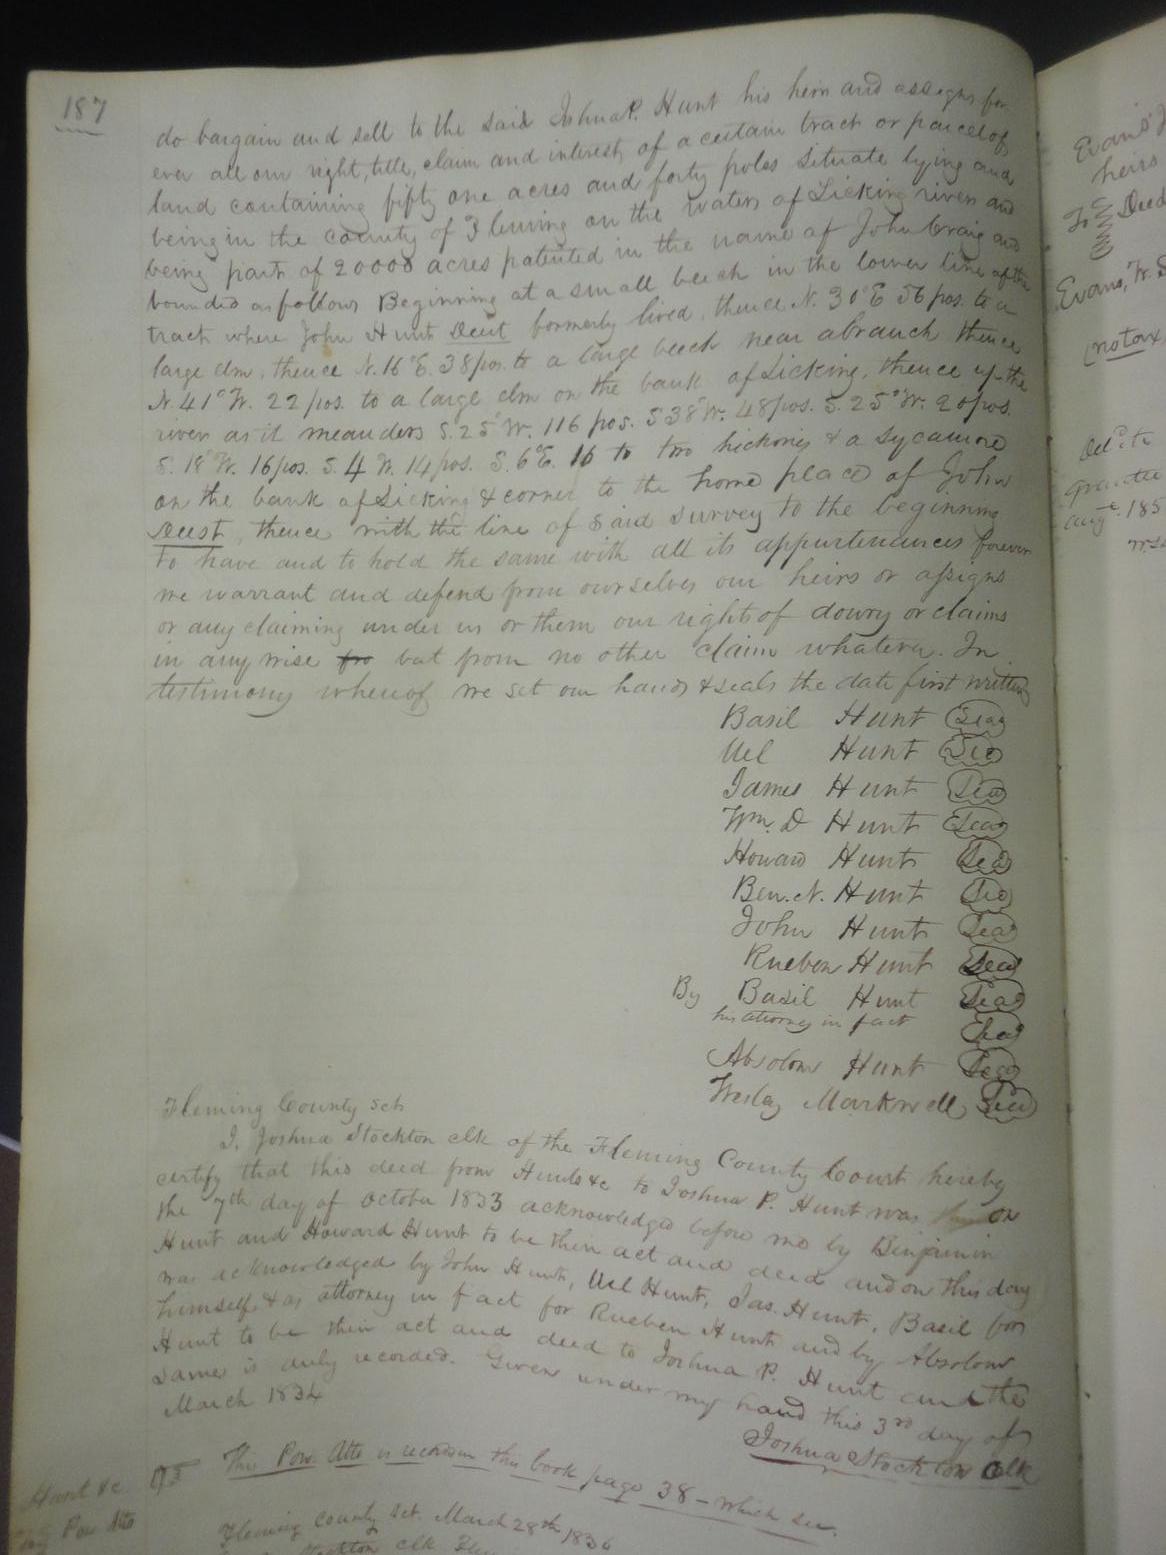 187
do bargain and sell to the said Joshua P. Hunt his heirs and assigns for
ever all our right, title, claim and interest, of a certain tract or parcel of
land containing fifty one acres and forty poles situate lying and
being in the county of Fleming on the waters of Licking river and
being part of 20000 acres patented in the name of John Craig and
bounded as follows Beginning at a small beech in the lower line of the
tract where John Hunt Decst formerly lived, thence N. 30° E 56 pos. to a
large elm, thence N. 16° E. 38 pos. to a large beech near a branch thence
N. 41° W. 22 pos. to a large elm on the bank of Licking, thence up the
river as it meanders S. 25° W. 116 pos. S 38° W. 48 pos. S. 25° W. 20 pos.
S. 18° W. 16 pos. S. 4 W. 14 pos. S. 6° E. 16 to two hickories & a sycamore
on the bank of Licking & corner to the home place of John
Decst, thence with the line of said survey to the beginning
to have and to hold the same with all its appurtenances forever
we warrant and defend from ourselves our heirs or assigns
or any claiming under us or them our rights of dowry or claims
in any wise fro but from no other claim whatever. In
testimony whereof we set our hands & seals the date first written
Basil Hunt Seal
Uel Hunt Seal
James Hunt Seal
Wm. D Hunt Seal
Howard Hunt Seal
Ben. N. Hunt Seal
John Hunt Seal
Rueben Hunt Seal
By Basil Hunt Seal
his attorney in fact Seal
Absolom Hunt Seal
Wesley Markwell Seal
Fleming County Sct
I, Joshua Stockton clk of the Fleming County Court hereby
certify that this deed from Hunts &c to Joshua P. Hunt was on
the 7th day of October 1833 acknowledged before me by Benjamin
Hunt and Howard Hunt to be their act and deed and on this day
was acknowledged by John Hunt, Uel Hunt, Jas. Hunt, Basil for
himself & as attorney in fact for Rueben Hunt and by Absolom
Hunt to be their act and deed to Joshua P. Hunt and the
same is duly recorded. Given under my hand this 3rd day of
March 1834
Joshua Stockton Clk
This Pow. Atto is recorded in this book page 38 - which see.
Hunt &c
Pow Atto
Fleming County Sct. March 28th 1836
Stockton clk
Evans
heirs
To Deed
Evans, W.
(not ex
Del'd to
grantee
Aug. 185